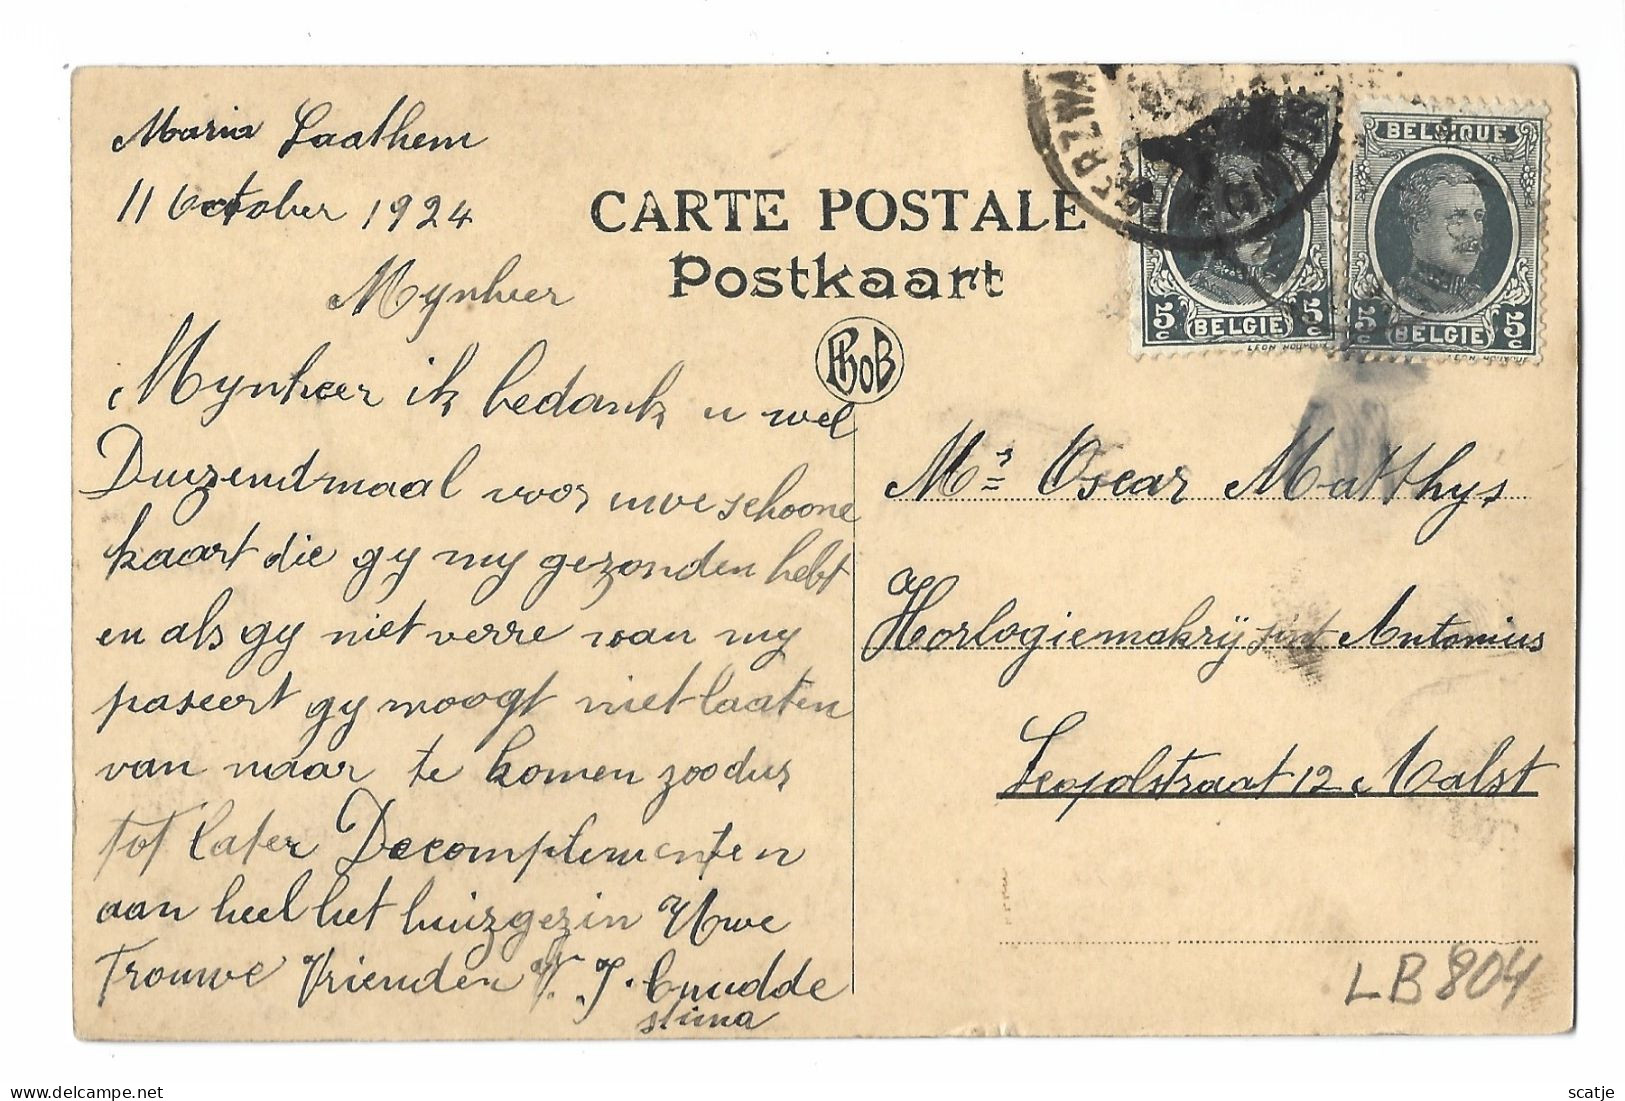 Maria Laathem
11 October 1924
Mynheer
Mynheer ik bedank u wel
Duizendmaal voor uwe schoone
kaart die gy my gezonden hebt
en als gy niet verre van my
paseert gy moogt niet laaten
van naar te komen zoodus
tot later De complementen
aan heel het huizgezin Uwe
Trouwe Vrienden J. Cnudde
CARTE POSTALE
Postkaart
PhoB
BELGIE
5c
5c
LEON HOUYOUX
BELGIQUE
BELGIE
5c
5c
Mr Oscar Matthys
Horlogiemakrij sint Antonius
Leopolstraat 12 Aalst
LB 804
scatje